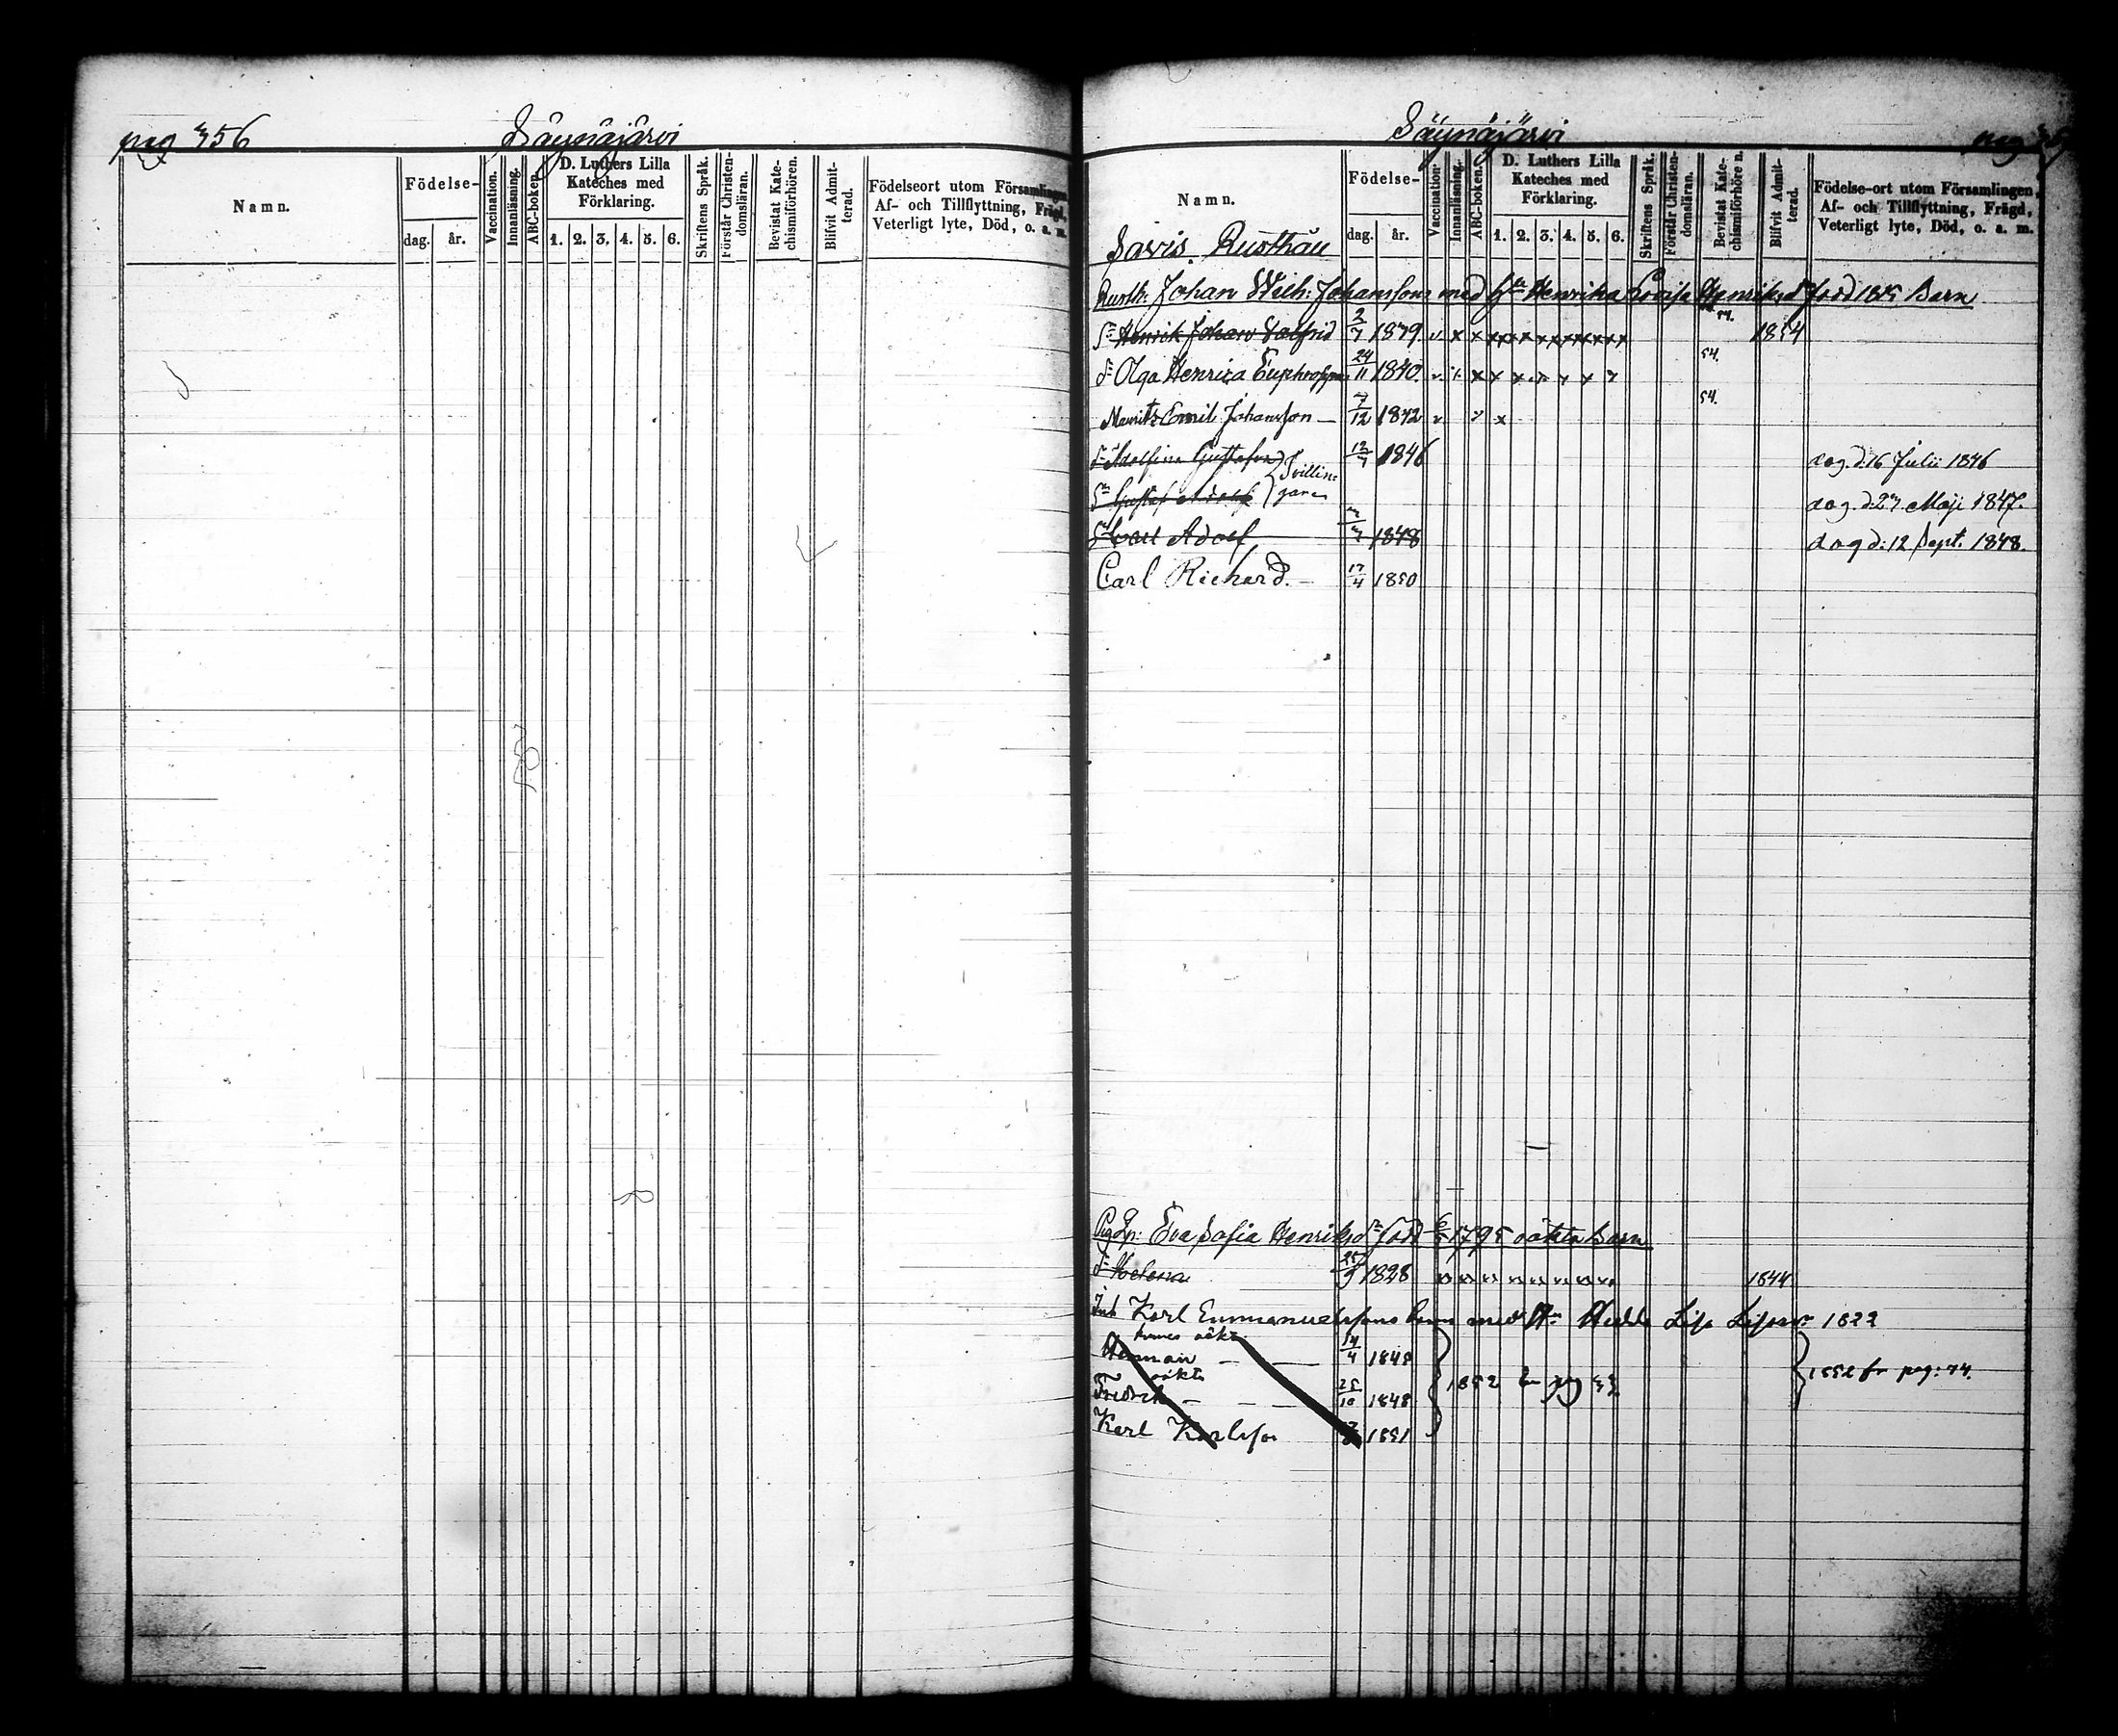 pag 356
Säynäjärvi
Namn.
Födelse-
dag.
år.
Vaccination.
Innanläsning.
ABC-boken.
D. Luthers Lilla
Kateches med
Förklaring.
1. 2. 3. 4. 5. 6.
Skriftens Språk.
Förstår Christen-
domsläran.
Bevistat Kate-
chismiförhören.
Blifvit Admit-
terad.
Födelseort utom Församlingen,
Af- och Tillflyttning, Frägd,
Veterligt lyte, Död, o. a. m.
Säynäjärvi
pag
Namn.
Födelse-
dag.
år.
Vaccination.
Innanläsning.
ABC-boken.
D. Luthers Lilla
Kateches med
Förklaring.
1. 2. 3. 4. 5. 6.
Skriftens Språk.
Förstår Christen-
domsläran.
Bevistat Kate-
chismiförhören.
Blifvit Admit-
terad.
Födelse-ort utom Församlingen,
Af- och Tillflyttning, Frägd,
Veterligt lyte, Död, o. a. m.
Rusthåll
Rusth: Johan Wilh: Johansson med Hu Henrika Lovisa Henriksd född Barn
Sn Henrik Johan Walfrid 1839 1854
dr Olga Henrica Euphrosyne 24/11 1840 54.
Maurits Emil Johansson 7/12 1842 54.
dr Adolfina Gustafva 1846 dog d. 16 Julii 1846
Sn Gustaf Adolf Tvillingar dog d. 27 Maji 1847.
Sn Carl Adolf 1848 dog d: 12 Sept. 1848.
Carl Richard. 17/4 1850
Eva Sofia Henriksdr född 1795 oäkta Barn
dr Helena 25/9 1828 1844
Inh Karl Emmanuelssons barn med Hu Hedda Lisa 1822
hennes oäkta
Herman 14/4 1845
oäkta
Fredrik 25/10 1848 1852 pag 1852 fr pag: 74.
Karl Karlsson 1851